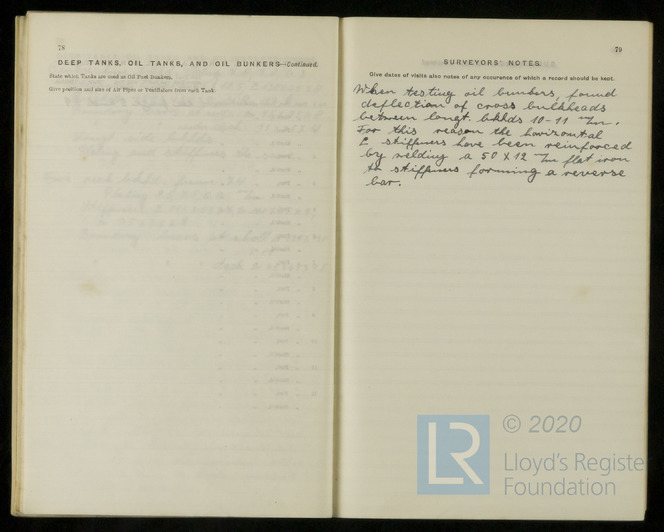 78
DEEP TANKS, OIL TANKS, AND OIL BUNKERS—Continued.
State which Tanks are used as Oil Fuel Bunkers.
Give position and size of Air Pipes or Ventilators from each Tank.
79
SURVEYORS' NOTES.
Give dates of visits also notes of any occurence of which a record should be kept.
When testing oil bunkers, found
deflection of cross bulkheads
between longt. bkhds 10-11 m/m.
For this reason the horizontal
L stiffeners have been reinforced
by welding a 50 X 12 m/m flat iron
to stiffeners forming a reverse
bar.
LR
© 2020
Lloyd's Registe
Foundation